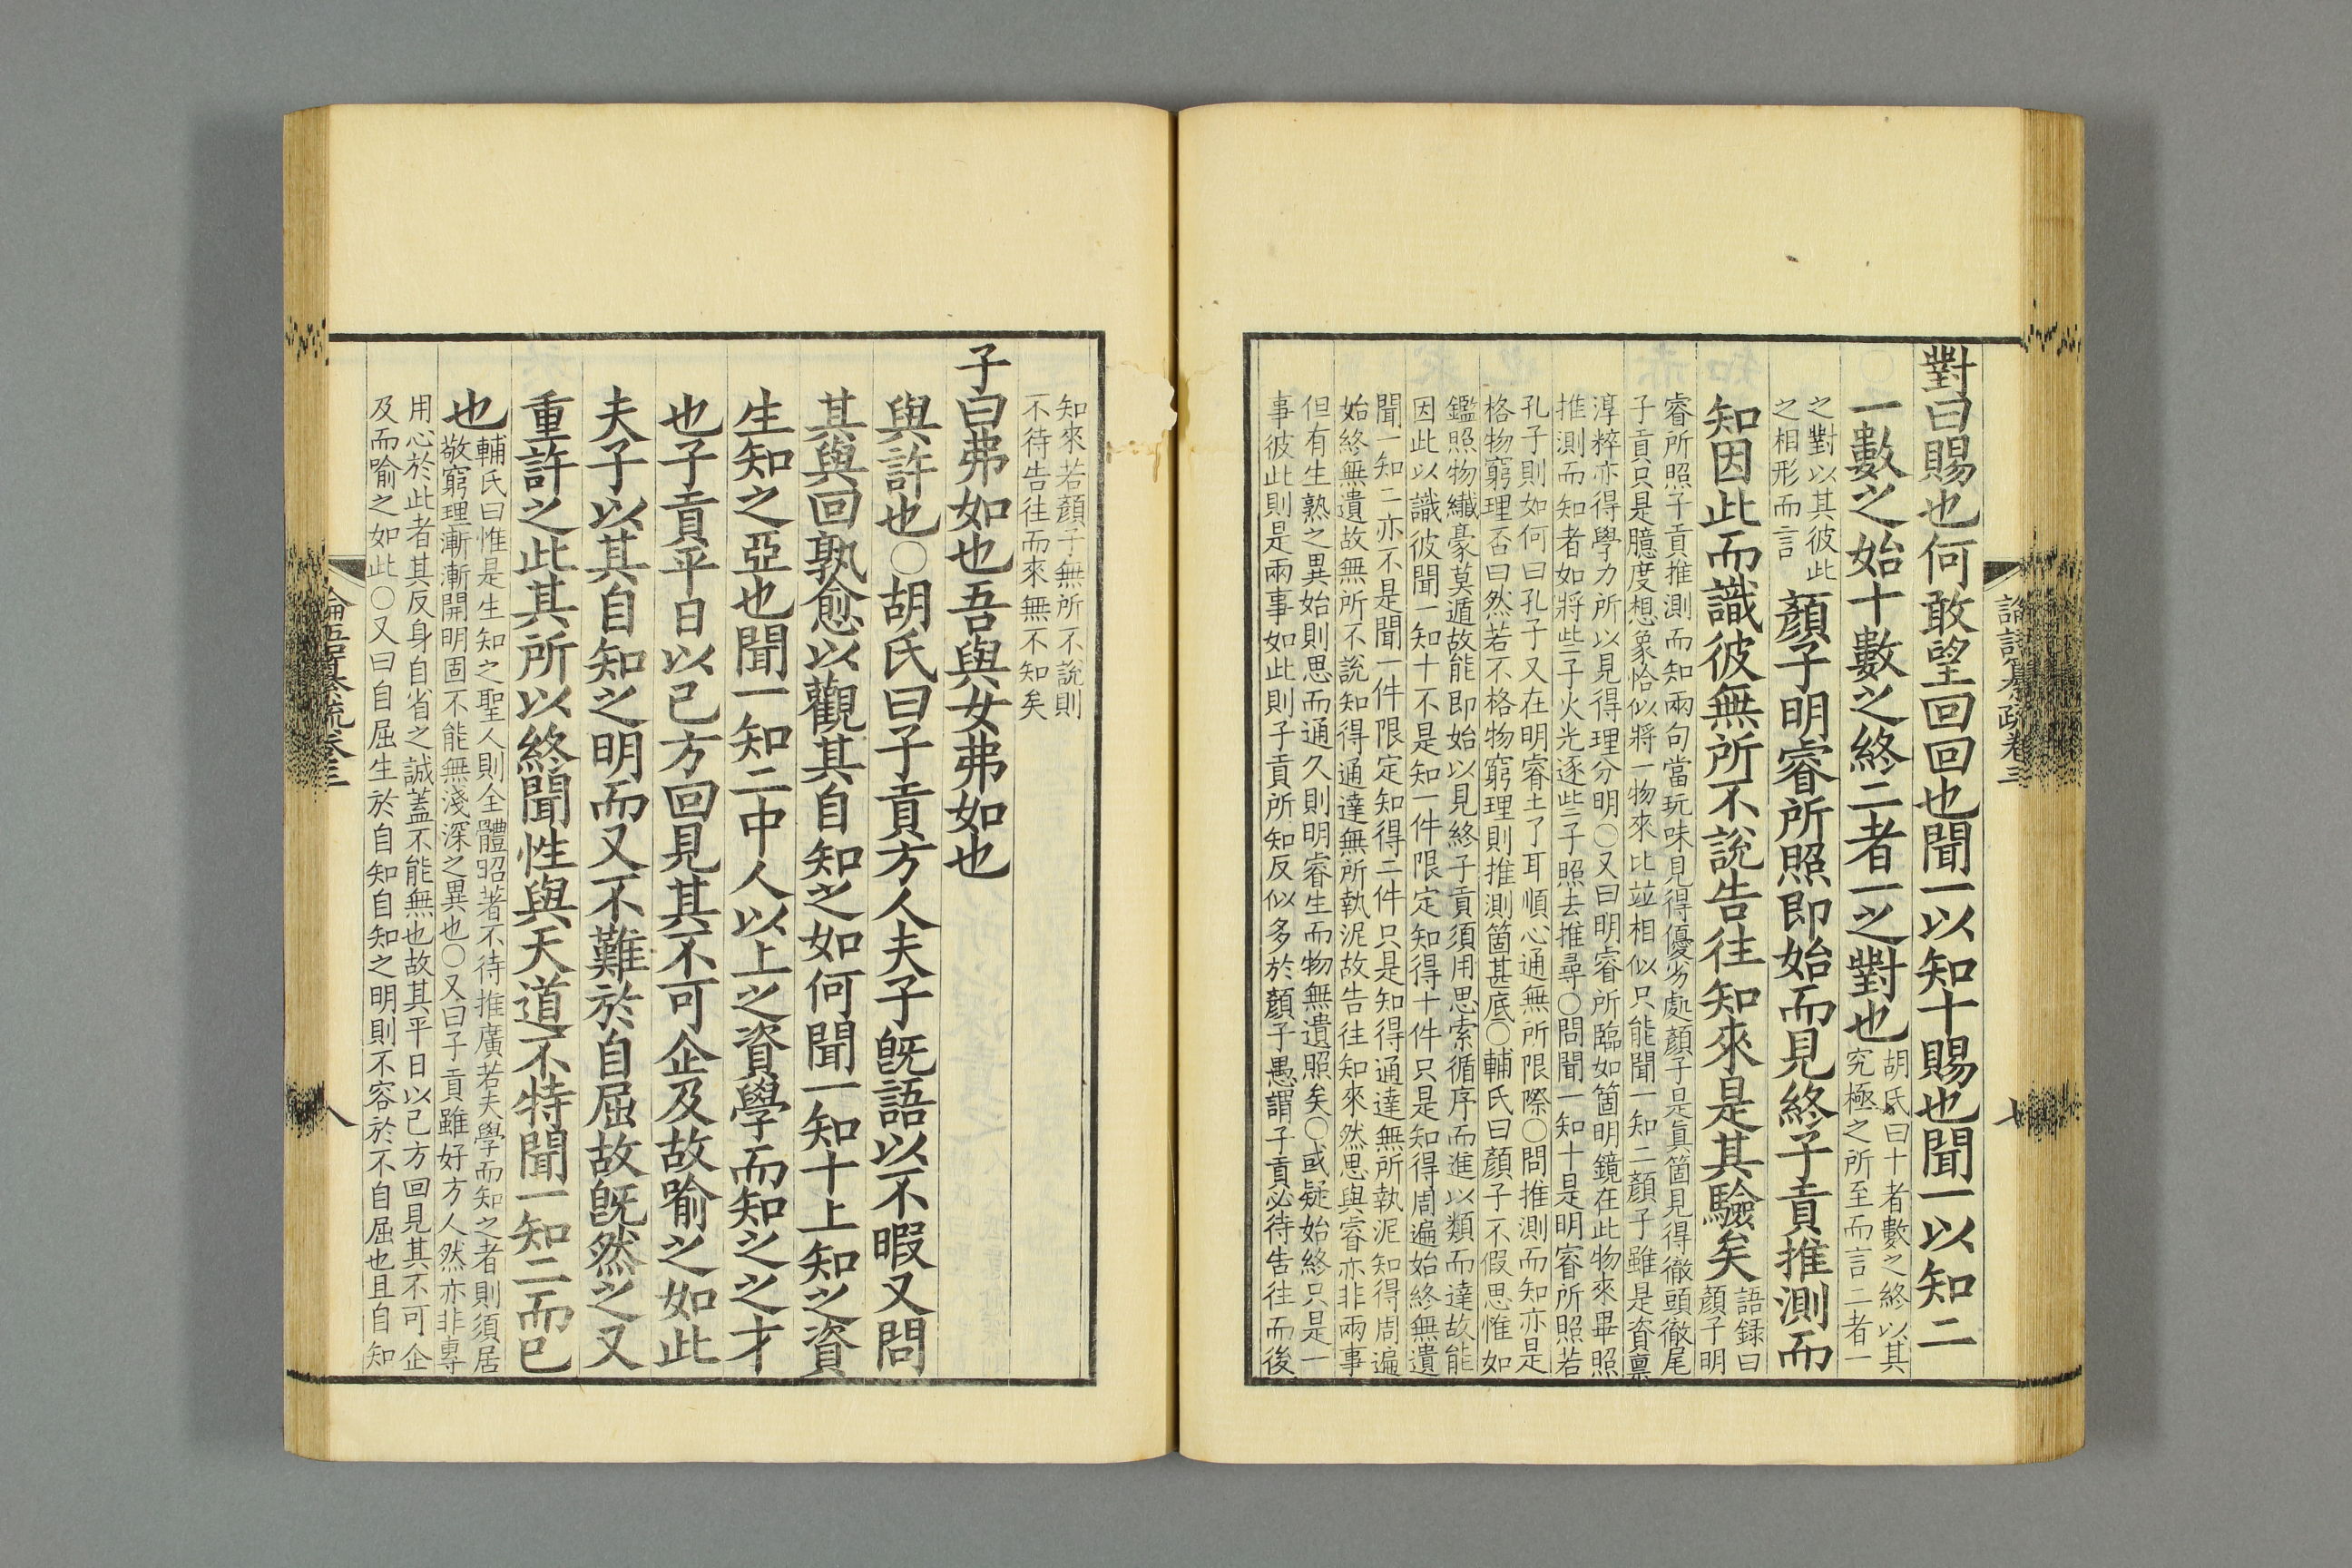 論語纂疏卷三
七
對曰賜也何敢望回回也聞一以知十賜也聞一以知二
一數之始十數之終二者一之對也胡氏曰十者數之終以其
究極之所至而言二者一
之對以其彼此
之相形而言
顏子明睿所照即始而見終子貢推測而
知因此而識彼無所不說告往知來是其驗矣語録曰
顏子明
睿所照子貢推測而知兩句當玩味見得優劣處顏子是真箇見得徹頭徹尾
子貢只是臆度想象恰似將一物來比並相似只能聞一知二顏子雖是資稟
淳粹亦得學力所以見得理分明○又曰明睿所臨如箇明鏡在此物來畢照
推測而知者如將些子火光逐些子照去推尋○問聞一知十是明睿所照若
孔子則如何曰孔子又在明睿上了耳順心通無所限際○問推測而知亦是
格物窮理否曰然若不格物窮理則推測箇甚底○輔氏曰顏子不假思惟如
鑑照物纖毫莫遁故能即始以見終子貢須用思索循序而進以類而達故能
因此以識彼聞一知十不是知一件限定知得十件只是知得周遍始終無遺
聞一知二亦不是聞一件限定知得二件只是知得通達無所執泥知得周遍
始終無遺故無所不說知得通達無所執泥故告往知來然思與睿亦非兩事
但有生熟之異始則思而通久則明睿生而物無遺照矣○或疑始終只是一
事彼此則是兩事如此則子貢所知反似多於顏子愚謂子貢必待告往而後
知來若顏子無所不說則
不待告往而來無不知矣
子曰弗如也吾與女弗如也
與許也○胡氏曰子貢方人夫子既語以不暇又問
其與回孰愈以觀其自知之如何聞一知十上知之資
生知之亞也聞一知二中人以上之資學而知之之才
也子貢平日以己方回見其不可企及故喻之如此
夫子以其自知之明而又不難於自屈故既然之又
重許之此其所以終聞性與天道不特聞一知二而已
也輔氏曰惟是生知之聖人則全體昭著不待推廣若夫學而知之者則須居
敬窮理漸漸開明固不能無淺深之異也○又曰子貢雖好方人然亦非專
用心於此者其反身自省之誠蓋不能無也故其平日以己方回見其不可企
及而喻之如此○又曰自屈生於自知自知之明則不容於不自屈也且自知
論語纂疏卷三
八